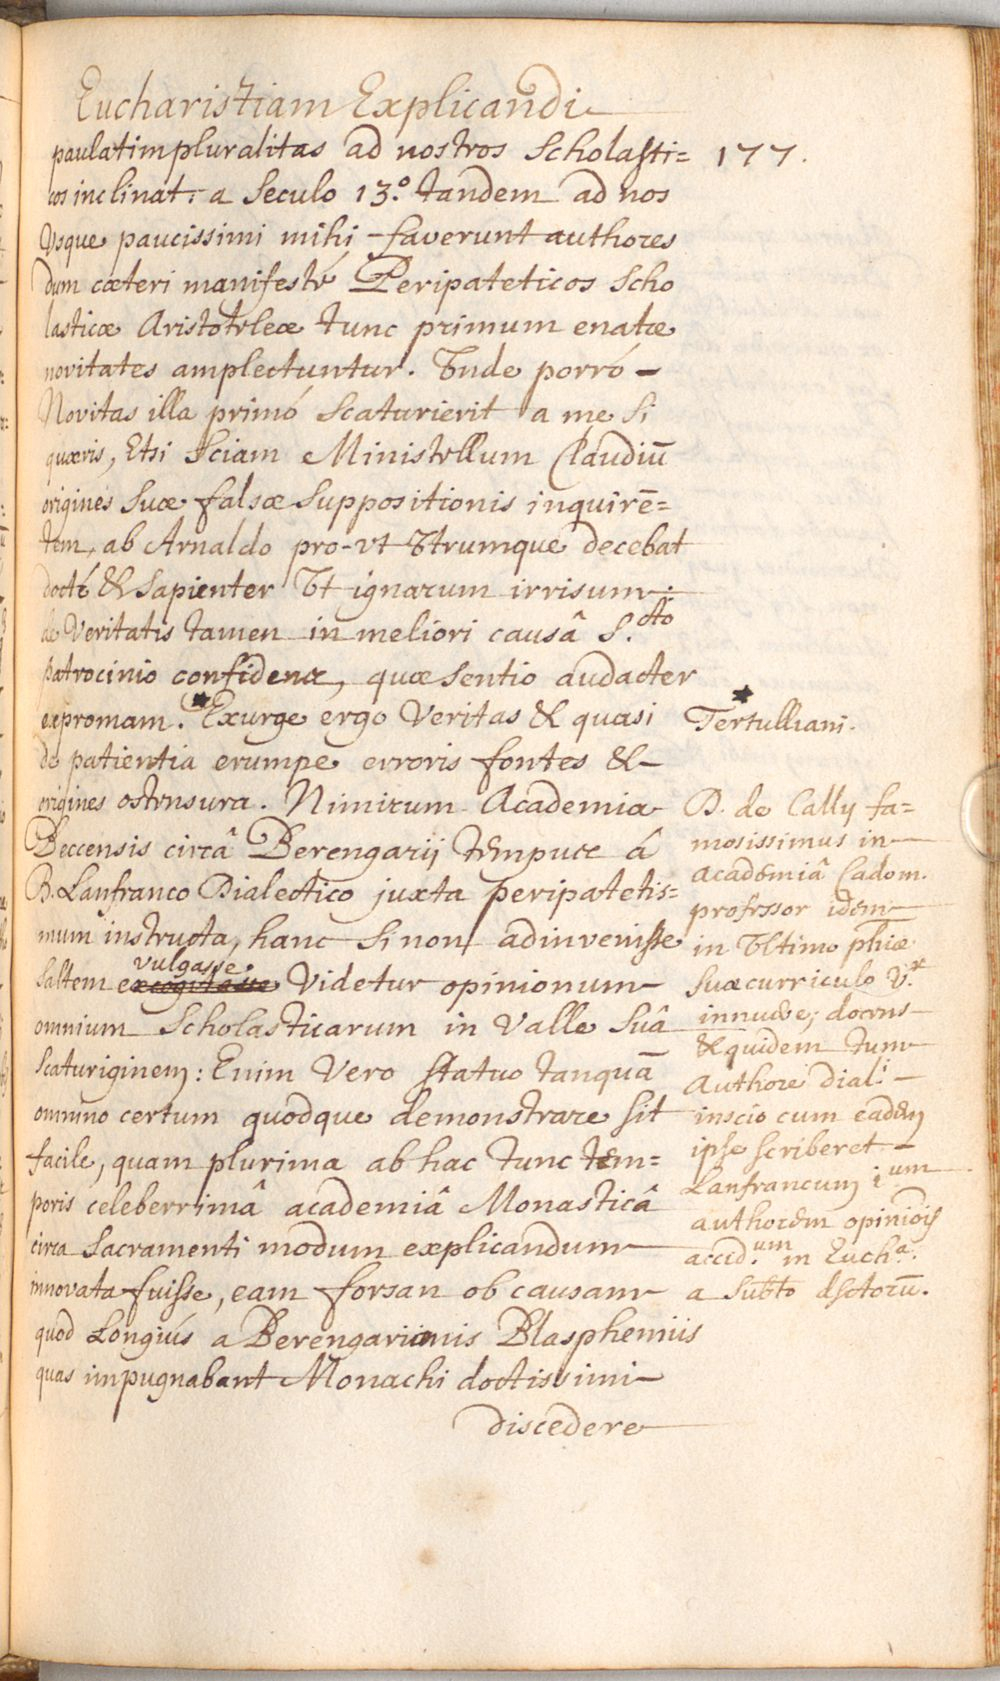 Eucharistiam Explicandi
paulatim pluralitas ad nostros Scholasti=
cos inclinat: a Seculo 13.º tandem ad nos
Vsque paucissimi mihi faverunt authores
dum cæteri manifesté Peripateticos Scho
lasticæ Aristoteleæ tunc primum enatæ
novitates amplectuntur. Vnde porró
Novitas illa primó Scaturierit a me Si
quæris, Etsi Sciam Ministellum Claudiū
origines Suæ falsæ Suppositionis inquirē=
tem, ab Arnaldo pro-vt Vtrumque decebat
docté & Sapienter Vt ignarum irrisum:
de Veritatis tamen in meliori causâ S.cto
patrocinio confidens, quæ sentio audacter
expromam. * Exurge ergo Veritas & quasi
de patientia erumpe erroris fontes &
origines ostensura. Nimirum Academia
Beccensis circâ Berengarij tempus â
B. Lanfranco Dialectico juxta peripatetis=
mum instructa, hanc Si non adinvenisse
vulgasse
Saltem excogitasse Videtur opinionum
omnium Scholasticarum in Valle Suâ
Scaturiginem: Enim Vero Statuo tanquā
omnino certum quodque demonstrare sit
facile, quam plurima ab hac tunc tem=
poris celeberrimâ academiâ Monasticâ
circa Sacramenti modum explicandum
innovata fuisse, eam forsan ob causam
quod Longiús a Berengarianis Blasphemiis
quas impugnabant Monachi doctissimi
discedere
177.
*
Tertulliani.
D. de Cally fa=
mosissimus in
academiâ Cadom.
professor idem
in Vltimo phiæ
Suæ curriculo
innuere; docens
& quidem tum
Authore dial.i
inscio cum eadem
ipse scriberet
Lanfrancum i.um
authorem opiniois
accid.um in Euch.a
a Subto